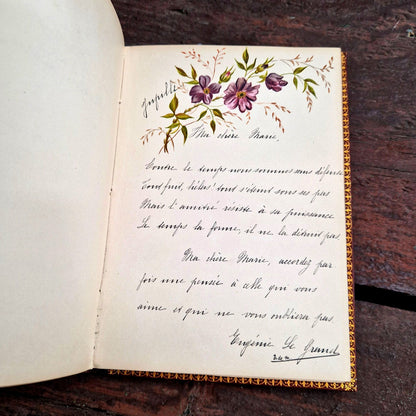 Jupille
Ma chère Marie,
Contre le temps nous sommes sans défense
Tout fuit, hélas! tout s'éteint sous ses pas
Mais l'amitié résiste à sa puissance
Le temps la forme, il ne la détruit pas
Ma chère Marie, accordez par
fois une pensée à celle qui vous
aime et qui ne vous oubliera pas
Eugénie Le Grand